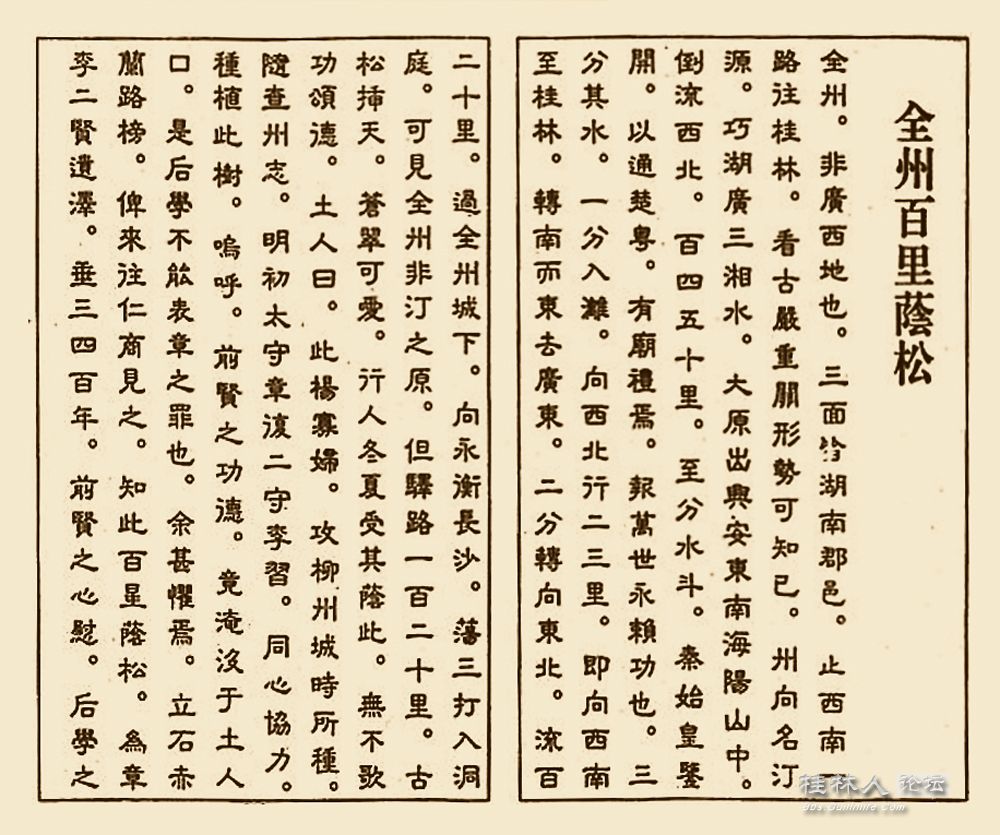 全州百里蔭松
全州。非廣西地也。三面皆湖南郡邑。止西南一
路往桂林。看古嚴重關形勢可知已。州向名汀
源。巧湖廣三湘水。大原出興安東南海陽山中。
倒流西北。百四五十里。至分水斗。秦始皇鑿
開。以通楚粵。有廟禮焉。報萬世永賴功也。三
分其水。一分入灕。向西北行二三里。即向西南
至桂林。轉南而東去廣東。二分轉向東北。流百
二十里。過全州城下。向永衡長沙。藩三打入洞
庭。可見全州非汀之原。但驛路一百二十里。古
松揷天。蒼翠可愛。行人冬夏受其蔭此。無不歌
功頌德。土人曰。此楊寡婦。攻柳州城時所種。
隨查州志。明初太守章復二守李習。同心協力。
種植此樹。嗚呼。前賢之功德。竟淹沒于土人
口。是后學不能表章之罪也。余甚懼焉。立石赤
蘭路榜。俾來往仁商見之。知此百里蔭松。為章
李二賢遺澤。垂三四百年。前賢之心慰。后學之
桂林人论坛
bbs.guilinlife.com